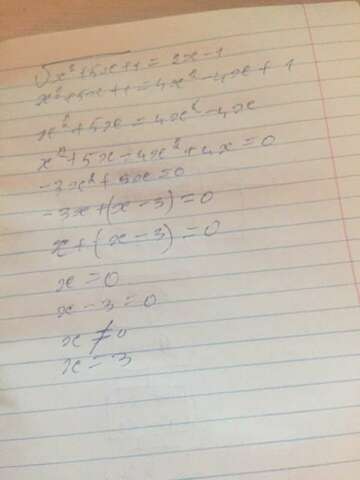 √x²+5x+1 = 2x-1
x²+5x+1=4x²-4x+1
x²+5x=4x²-4x
x²+5x-4x²+4x=0
-3x²+9x=0
-3x+(x-3)=0
x+(x-3)=0
x=0
x-3=0
x≠0
x=3